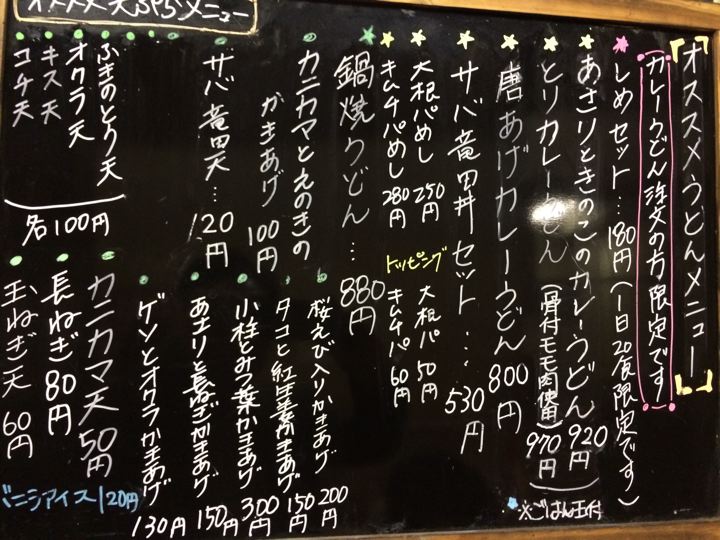 オススメ天ぷらメニュー
オススメうどんメニュー
カレーうどん注文の方限定です
しめセット…180円(一日20食限定です)
あさりときのこのカレーうどん920円
とりカレーうどん(骨付モモ肉使用)970円
※ごはん玉付
唐あげカレーうどん800円
サバ竜田丼セット…530円
大根パめし250円
キムチパめし280円
トッピング
大根パ50円
キムチパ60円
鍋焼うどん…880円
カニカマとえのきの
かきあげ100円
サバ竜田天…120円
ふきのとう天
オクラ天
キス天
ゴチ天
各100円
桜えび入りかきあげ200円
タコと紅生姜かきあげ150円
小柱とみつ葉かきあげ300円
あさりと長ねぎかきあげ150円
ゲソとオクラかきあげ130円
カニカマ天50円
長ねぎ80円
玉ねぎ天60円
バニラアイス120円